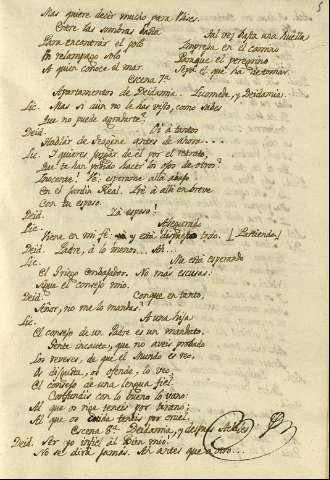 5
Mas quiere decir mucho para Ulises.
Entre las sombras basta Tal vez basta una huella
Para encontrar el polo Impresa en el camino
Un relampago solo Porque el peregrino
A quien conoce el mar. Sepa el que ha de tomar.
Escena 7ª
Apartamentos de Deidamia. Licomede, y Deidamia.
Lic. Mas si aun no le has visto, como sabes
Que no puede agradarte?
Deid. Oi à tantos
Hablar de Teagene antes de ahora....
Lic. I quieres juzgar de él por el retrato,
Que te han podido hacer los ojos de otros?
Inocente! Vè: esperarme allà abajo
En el Jardin Real. Irè à allà en breve
Con tu esposo.
Deid. Yà esposo!
Lic. Asegurado
Viene en mi fè: y està dispuesto todo. [Partiendo.]
Deid. Padre, à lo menos... Ah...
Lic. Me està esperando
El Griego Embajador. No mas escusas:
Sigue el consejo mio.
Deid. Conque en tanto,
Señor, no me lo mandas?
Lic. A una hija
El consejo de un Padre es un mandato.
Gente incauta, que no aveis probado
Los reveses, de que el Mundo es reo,
Os disgusta, os ofende, lo veo;
El consejo de una lengua fiel.
Confundis con lo bueno lo vano:
Al que os rige teneis por tirano;
Al que os cuida teneis por cruel.
Escena 8ª Deidamia, y despues Achiles
Deid. Ser yo infiel al bien mio.
No se dirà jamas. Ah antes que à otro...